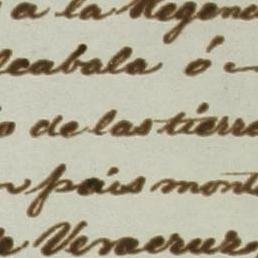 a la Regenc
lcabala ó
o de las tierra
pais mont
de Veracruz